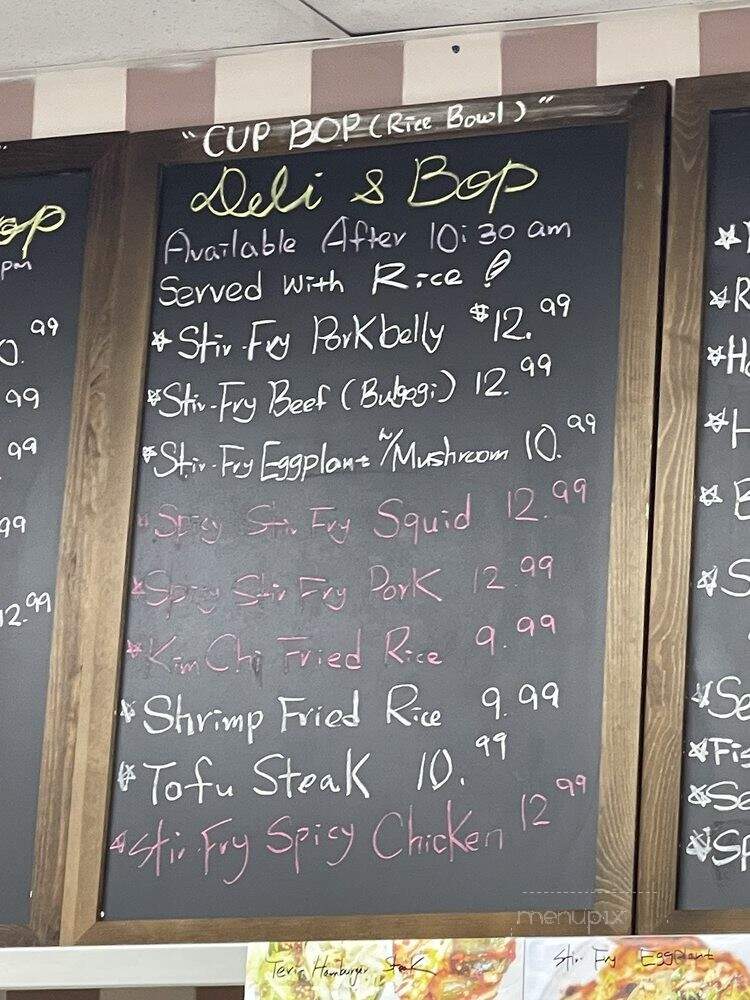 "CUP BOP (Rice Bowl)"
Deli & Bop
Available After 10:30 am
Served with Rice!
☆ Stir-Fry Porkbelly $12.99
☆ Stir-Fry Beef (Bulgogi) 12.99
☆ Stir-Fry Eggplant w/Mushroom 10.99
☆ Spicy Stir Fry Squid 12.99
☆ Spicy Stir Fry Pork 12.99
☆ Kim Chi Fried Rice 9.99
☆ Shrimp Fried Rice 9.99
☆ Tofu Steak 10.99
☆ Stir-Fry Spicy Chicken 12.99
op
pm
0.99
99
.99
99
12.99
☆ R
☆ Ho
☆ H
☆ B
☆ S
☆ Se
☆ Fis
☆ Se
☆ Sp
menupix
Teri Hamburger Steak
Stir Fry Eggplant